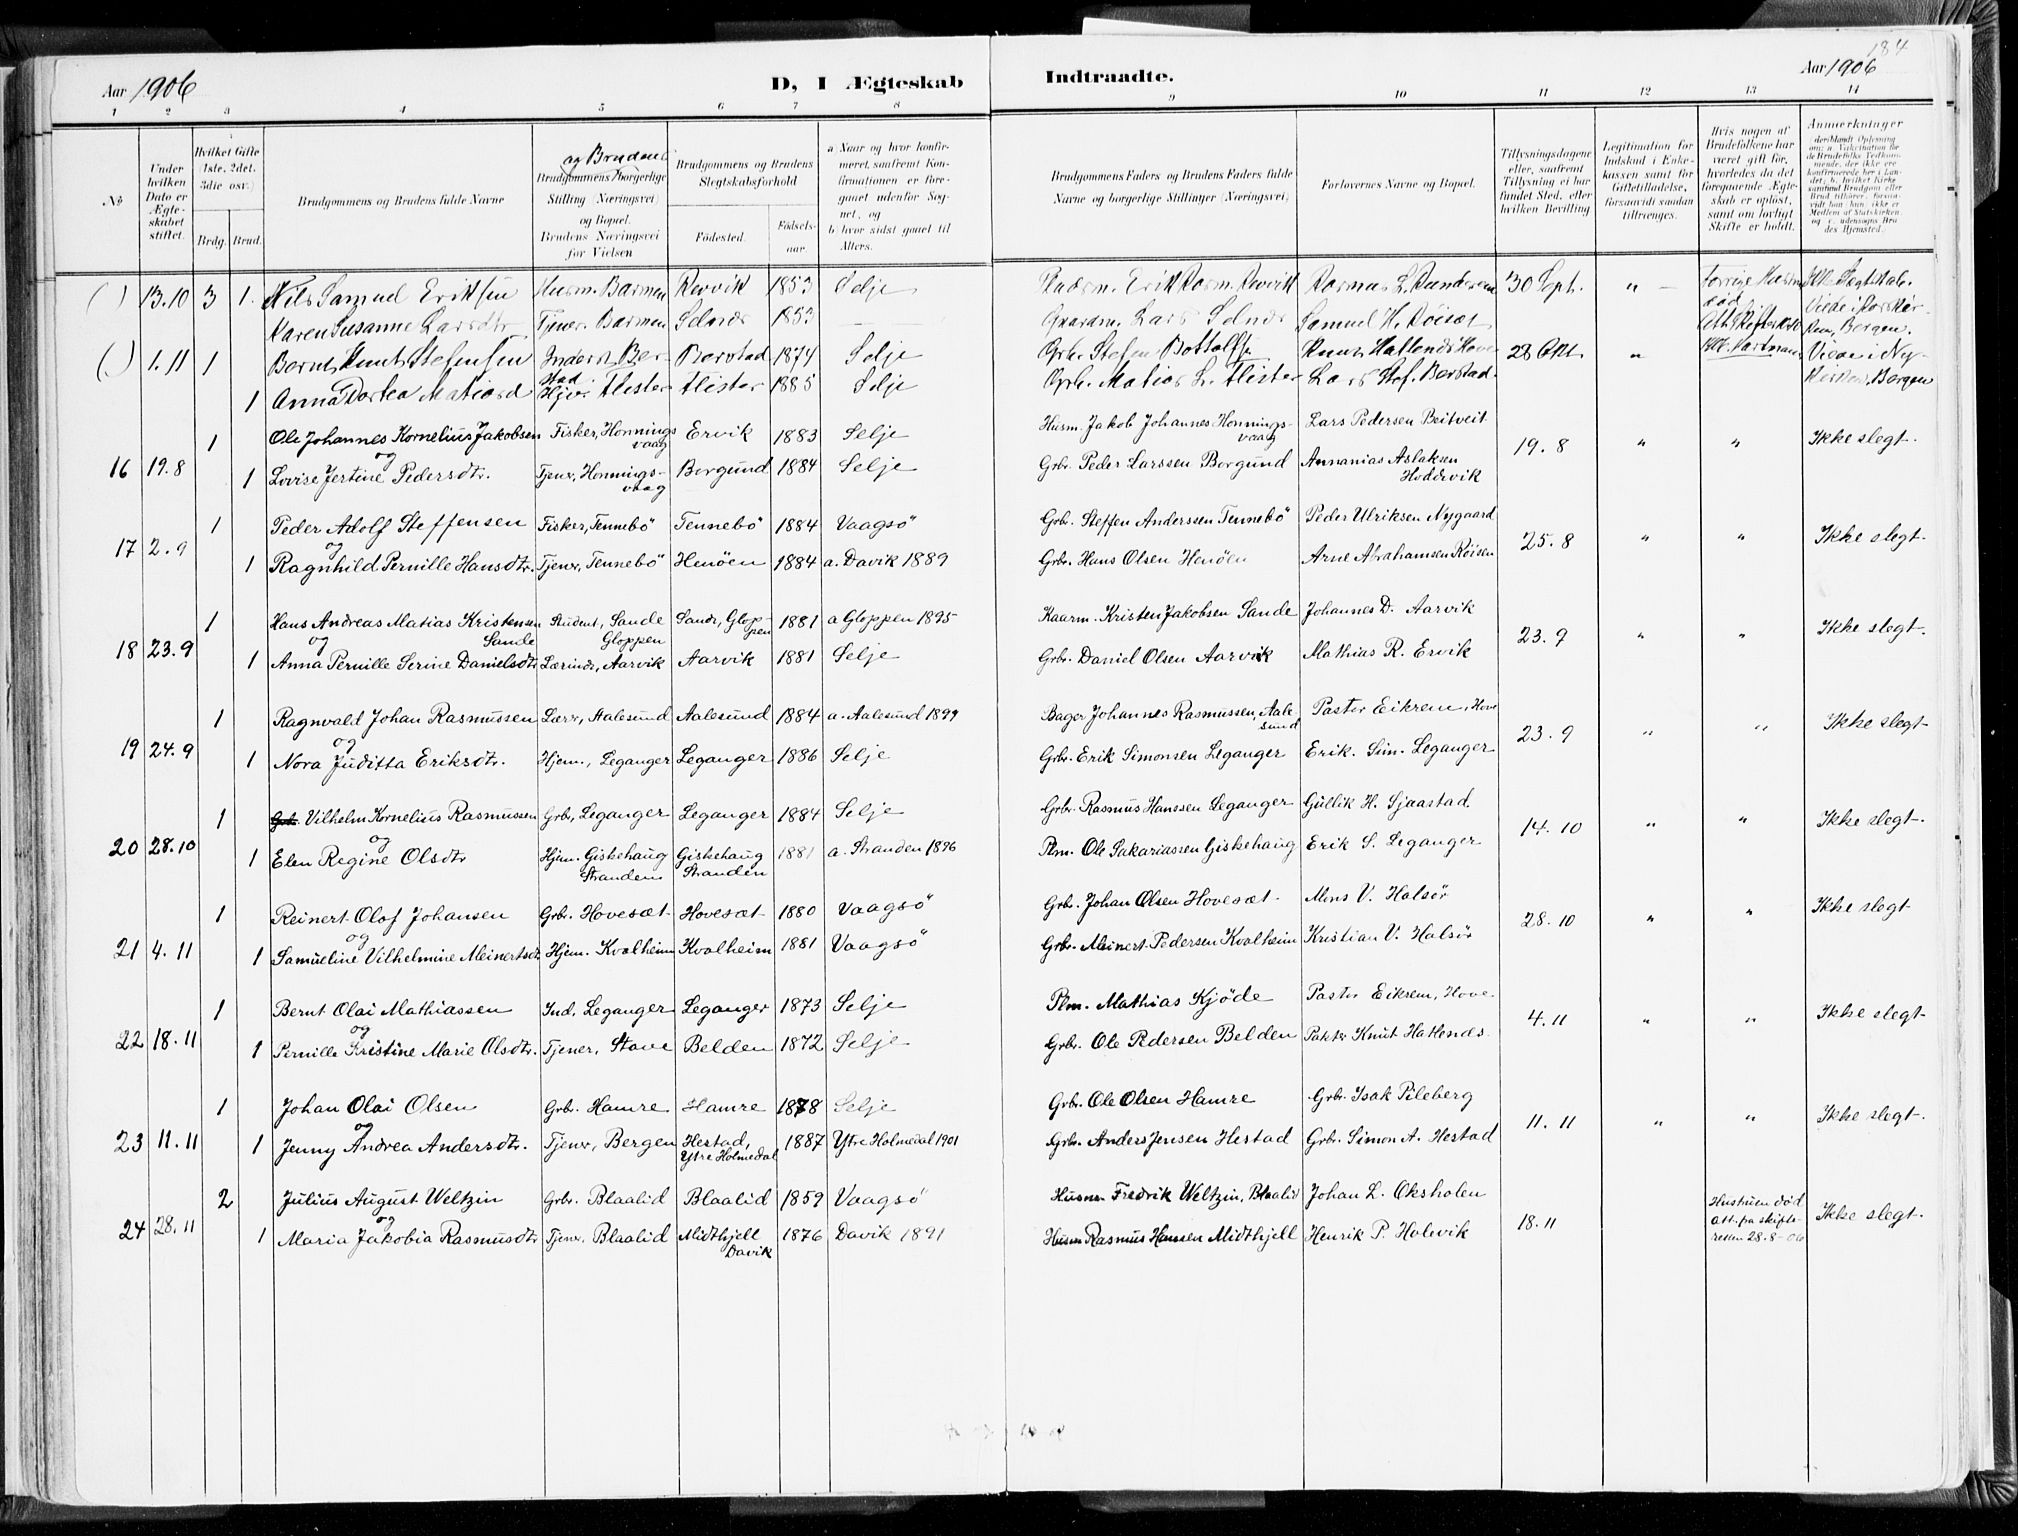 184
Aar 1906
D, I Ægteskab
Indtraadte.
Aar 1906
1 2 3 4 5 6 7 8 9 10 11 12 13 14
No
Under hvilken Dato er Ægteskabet stiftet.
Hvilket Gifte (1ste, 2det, 3die osv.)
Brdg. Brud.
Brudgommens og Brudens fulde Navne
og Brudens
Brudgommens borgerlige Stilling (Næringsvei) og Bopæl. Brudens Næringsvei før Vielsen
Brudgommens og Brudens Slegtskabsforhold
Fødested.
Fødselsaar.
a Naar og hvor konfirmeret, saafremt Konfirmationen er foregaaet udenfor Sognet, og
b hvor sidst gaaet til Alters.
Brudgommens Faders og Brudens Faders fulde Navne og borgerlige Stillinger (Næringsvei)
Forlovernes Navne og Bopæl.
Tillysningsdagene eller, saafremt Tillysning ei har fundet Sted, efter hvilken Bevilling
Legitimation for Indskud i Enkekassen samt for Giftetilladelse, forsaavidt saadan tiltrænges.
Hvis nogen af Brudefolkene har været gift før, hvorledes da det foregaaende Ægteskab er opløst, samt om lovligt Skifte er holdt.
Anmerkninger
( ) 13.10 3 1. Nils Samuel Eriksen Husm. Barmen Revvik 1853 Selje Erik Rasm. Revvik Rasmus L. 30 Spt. " død
Karen Susanne Larsdtr Tjener. Barmen Selnes 1853 Gaardm. Lars Selnes Samuel H. Røisæt Bergen.
( ) 1.11 1 Bernt Knut Stefensen Berstad 1874 Selje Grb. Stefen Bottolfs Knut Hatlends Hove 28 Okt. " Viede i Ny-
1 Anna Dortea Matiasd Hjv. Flister Flister 1885 Selje Grb. Matias L. Flister Lars Stef. Berstad. kirken, Bergen
1 Ole Johannes Kornelius Jakobsen Fisker, Honningsvaag Ervik 1883 Selje Husm. Jakob Johannes Honningsvaag Lars Pedersen Beitveit
og
16 19.8 1 Lovise Jertine Pedersdtr. Tjener, Honningsvaag Borgund 1884 Selje Grbr. Peder Larssen Borgund Annanias Aslaksen Hoddevik 19.8 " " Ikke slegt.
1 Peder Adolf Steffensen Fisker, Tennebö Tennebö 1884 Vaagsö Grbr. Steffen Anderssen Tennebö Peder Ulriksen Nygaard
og
17 2.9 1 Ragnhild Pernille Hansdtr. Tjener, Tennebö Henöen 1884 a. Davik 1889 Grbr. Hans Olsen Henöen Arne Abrahamsen Röisen 25.8 " " Ikke slegt.
1 Hans Andreas Matias Kristensen Sande Student, Sande Gloppen Sande, Gloppen 1881 a Gloppen 1895 Kaarm. Kristen Jakobsen Sande Johannes D. Aarvik
og
18 23.9 1 Anna Pernille Serine Danielsdtr Lærinde, Aarvik Aarvik 1881 Selje Grbr. Daniel Olsen Aarvik Mathias R. Ervik 23.9 " " Ikke slegt.
1 Ragnvald Johan Rasmussen Lærer, Aalesund Aalesund 1884 a. Aalesund 1899 Bager Johannes Rasmussen, Aalesund Pastor Eikrem, Hove
og
19 24.9 1 Nora Juditta Eriksdtr. Hjem., Leganger Leganger 1886 Selje Grbr. Erik Simonsen Leganger Erik. Sim. Leganger 23.9 " " Ikke slegt.
1 Vilhelm Kornelius Rasmussen Grbr, Leganger Leganger 1884 Selje Grbr. Rasmus Hanssen Leganger Gullik H. Sjaastad
og
20 28.10 1 Elen Regine Olsdtr Hjem. Giskehaug Stranden Giskehaug Stranden 1881 a. Stranden 1896 Plm. Ole Sakariassen Giskehaug Erik S. Leganger 14.10 " " Ikke slegt.
1 Reinert Olaf Johansen Grbr. Hovesæt Hovesæt 1880 Vaagsö Grbr. Johan Olsen Hovesæt Mons V. Halsör
og
21 4.11 1 Samueline Vilhelmine Meinertsdtr Hjem. Kvalheim Kvalheim 1881 Vaagsö Grbr. Meinert Pedersen Kvalheim Kristian V. Halsör 28.10 " " Ikke slegt
1 Bernt Olai Mathiassen Ind, Leganger Leganger 1873 Selje Plm. Mathias Kjöde Pastor Eikrem, Hove.
og
22 18.11 1 Pernille Kristine Marie Olsdtr. Tjener, Stave Belden 1872 Selje Grbr. Ole Pedersen Belden Knut Hatlends. 4.11 " " Ikke slegt
1 Johan Olai Olsen Grbr. Hamre Hamre 1878 Selje Grbr. Ole Olsen Hamre Grbr. Isak Pileberg
og
23 11.11 1 Jenny Andrea Andersdtr. Tjener, Bergen Hestad, Ytre Holmedal 1887 Ytre Holmedal 1901 Grbr. Anders Jensen Hestad Grbr. Simon A. Hestad 11.11 " " Ikke slegt.
2 Julius August Weltzin Grbr. Blaalid Blaalid 1859 Vaagsö Husm. Fredrik Weltzin, Blaalid Johan L. Oksholen Hustruen död
og
24 28.11 1 Maria Jakobia Rasmusdtr Tjener, Blaalid Midthjell Davik 1876 Davik 1891 Husm Rasmus Hansen Midthjell Henrik P. Holevik 18.11 att. fra skifteretten 28.8-06 Ikke slegt.